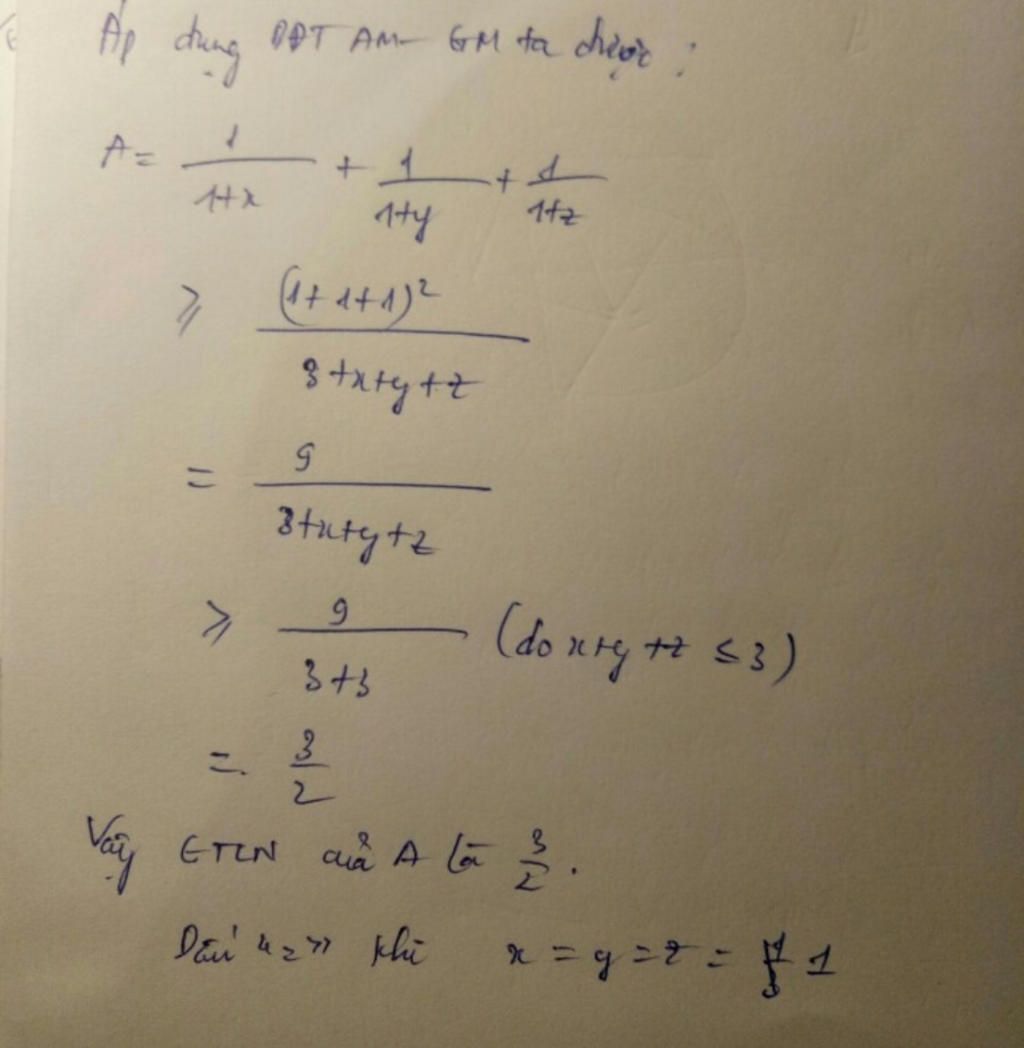 Áp dụng BĐT AM-GM ta được:
A = 1/(1+x) + 1/(1+y) + 1/(1+z)
≥ (1+1+1)²/(3+x+y+z)
= 9/(3+x+y+z)
≥ 9/(3+3) (do x+y+z ≤ 3)
= 3/2
Vậy GTLN của A là 3/2.
Dấu "=" khi x = y = z = 1